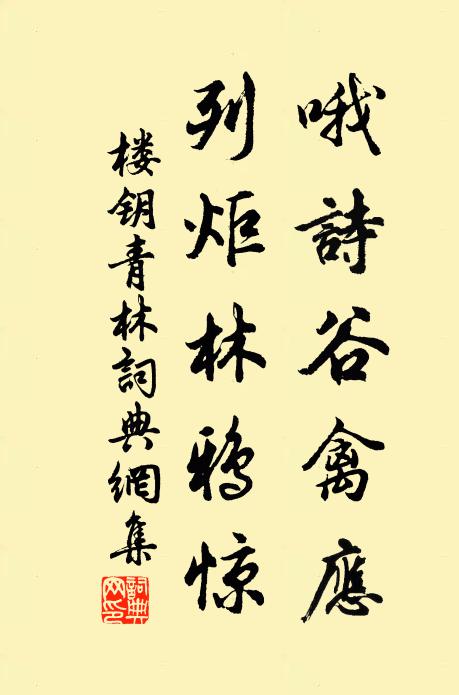 哦詩谷禽應
列炬林鴉惊
楼钥青林詞典網集
詞典网印